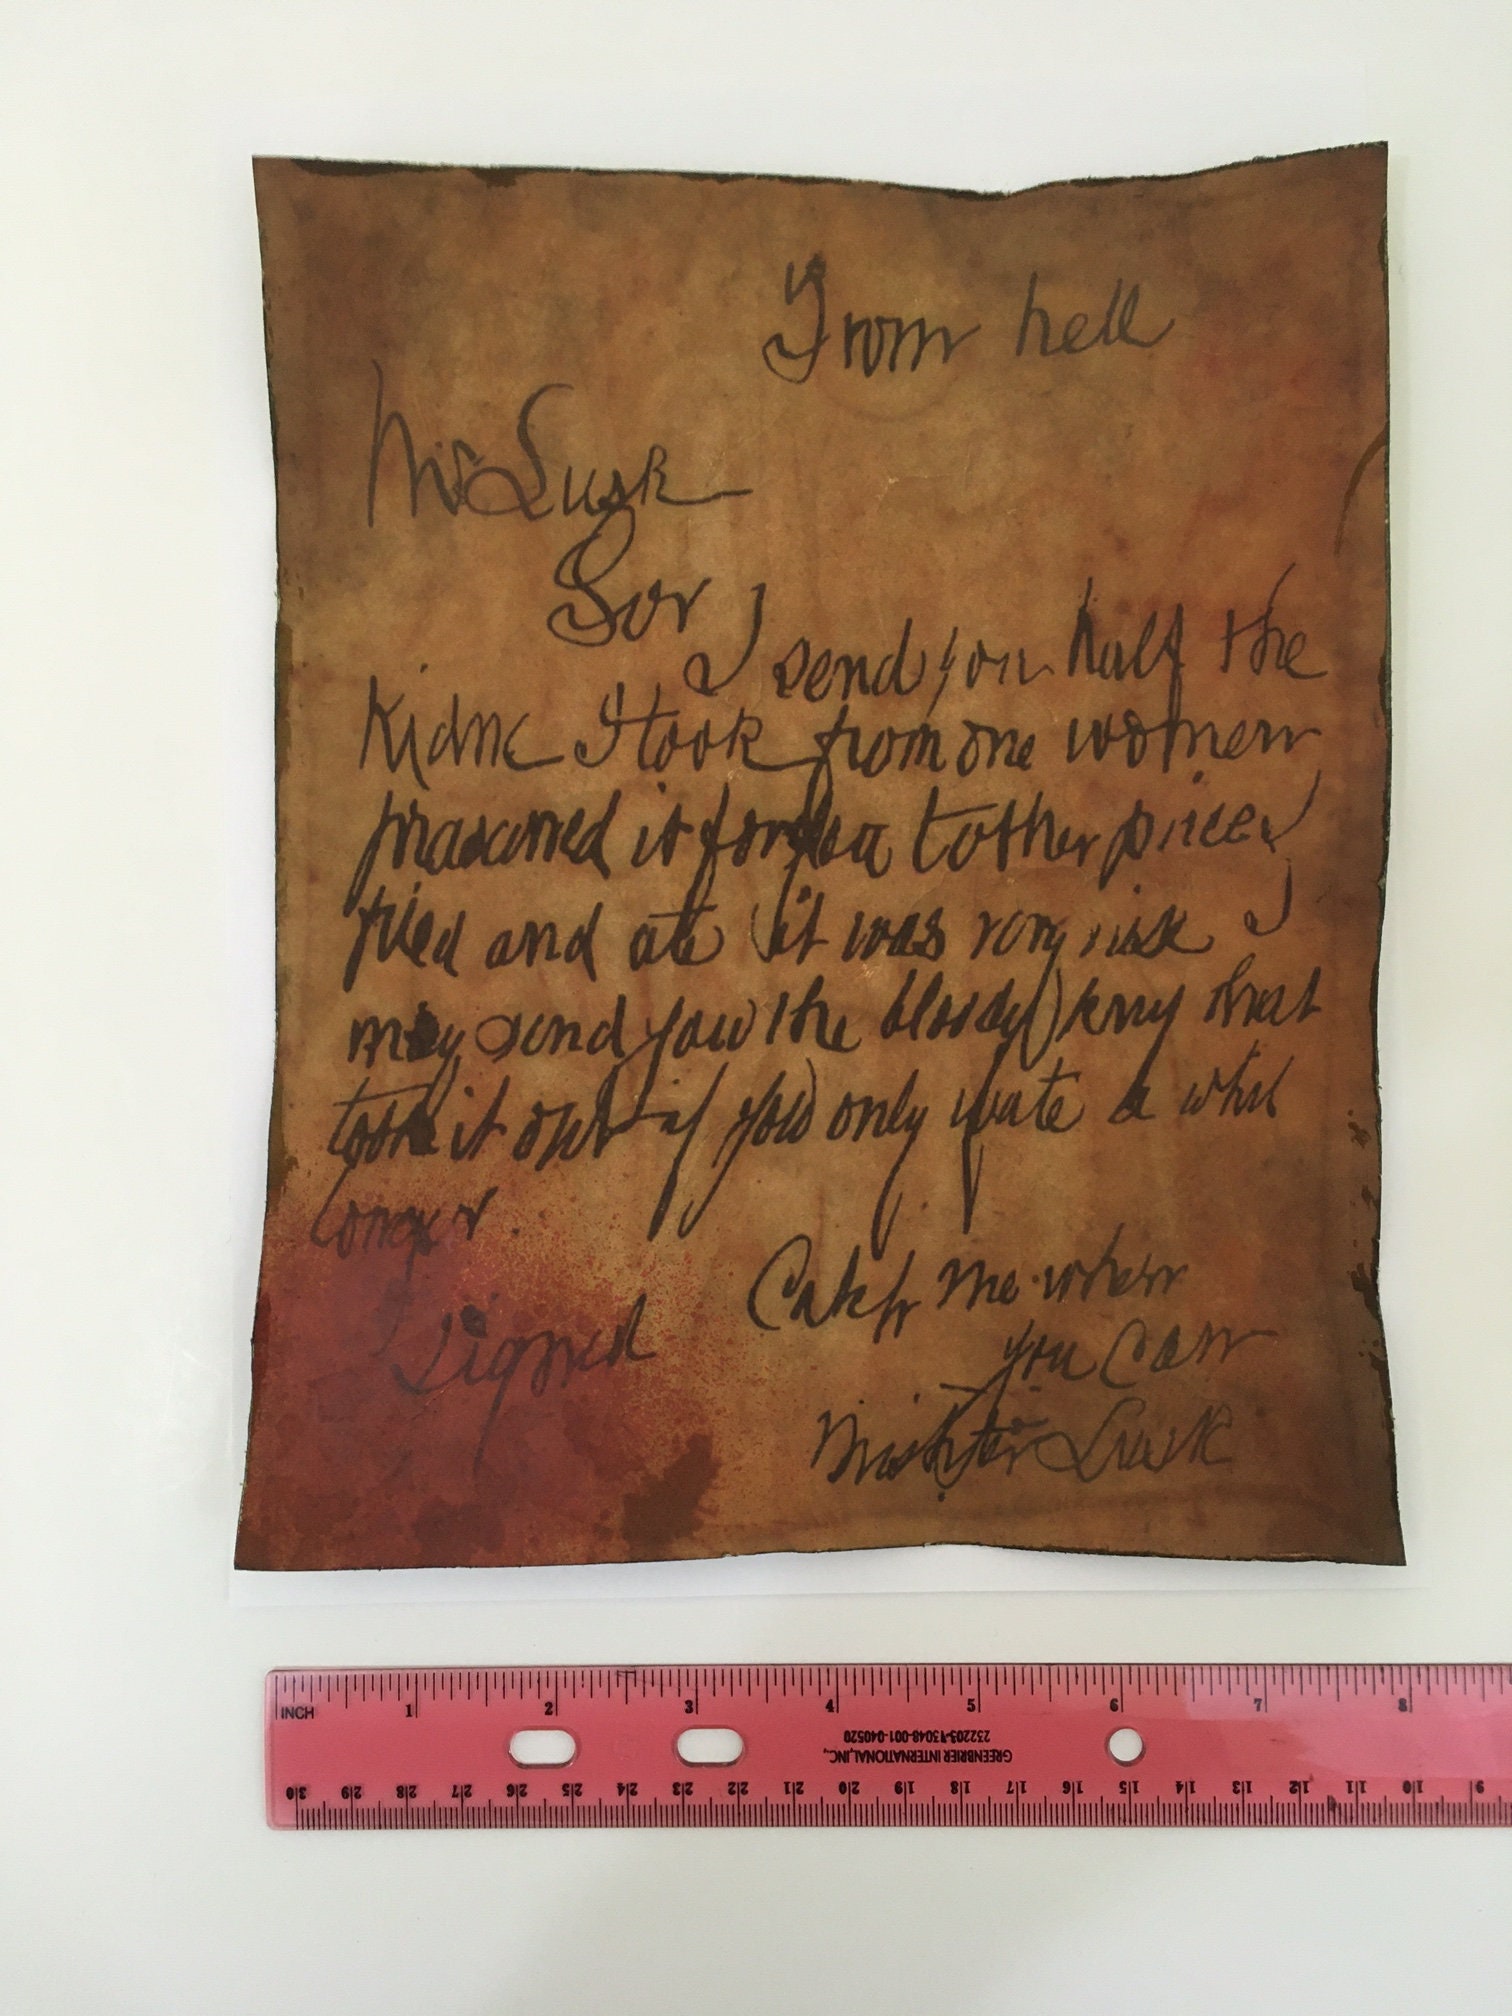 From hell
Mr Lusk
Sor
I send you half the
Kidne I took from one women
prasarved it for you tother piece I
fried and ate it was very nise I
may send you the bloody knif that
took it out if you only wate a whil
longer.
Signed
Catch me when
you Can
Mishter Lusk
INCH 1 2 3 4 5 6 7 8
GREENBRIER INTERNATIONAL, INC.
232203-13048-001-040520
30 29 28 27 26 25 24 23 22 21 20 19 18 17 16 15 14 13 12 11 10 9